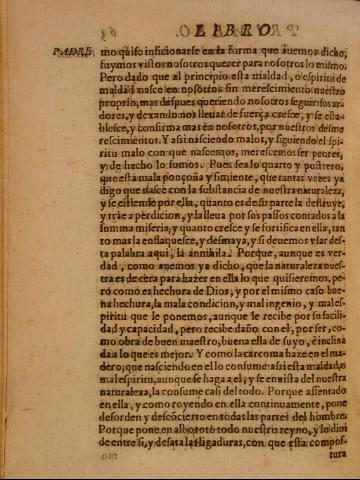 LIBRO
PADRE
mo quiso inficionarse en la forma que auemos dicho,
fuymos vistos nosotros querer para nosotros lo mismo.
Pero dado que al principio esta maldad, o espiritu de
maldad nasce en nosotros sin merescimiento nuestro
proprio, mas despues queriendo nosotros seguir sus ar-
dores, y dexandonos lleuar de su fuerça cresce, y se esta-
blesce, y confirma mas en nosotros, por nuestros desme
rescimientos. Y assi nasciendo malos, y siguiendo el spi-
ritu malo con que nascemos, merescemos ser peores,
y de hecho lo somos. Pues sea lo quarto y postrero,
que esta mala ponçoña y simiente, que tantas vezes ya
digo que nasce con la substancia de nuestra naturaleza,
y se estiende por ella, quanto es de su parte la destruye,
y trae a perdicion, y la lleua por sus passos contados a la
summa miseria; y quanto cresce y se fortifica en ella, tan
to mas la enflaquesce, y desmaya, y si deuemos vsar des-
ta palabra aqui, la annihila. Porque, aunque es ver-
dad, como auemos ya dicho, que la naturaleza nues-
tra es de cera para hazer en ella lo que quisieremos, pe-
ro como es hechura de Dios, y por el mismo caso bue-
na hechura, la mala condicion, y mal ingenio, y mal es-
piritu que le ponemos, aunque le recibe por su facili-
dad y capacidad, pero recibe daño con el, por ser, co-
mo obra de buen maestro, buena ella de suyo, è inclina
da a lo que es mejor. Y como la carcoma haze en el ma-
dero, que nasciendo en el lo consume: assi esta maldad, o
mal espiritu, aunque se haga a el, y se enuista del nuestra
naturaleza, la consume casi del todo. Porque assentado
en ella, y como royendo en ella continuamente, pone
desorden y desconcierto en todas las partes del hombre.
Porque pone en alboroto todo nuestro reyno, y lo diui
de entre si, y desata las ligaduras, con que esta compos-
tura